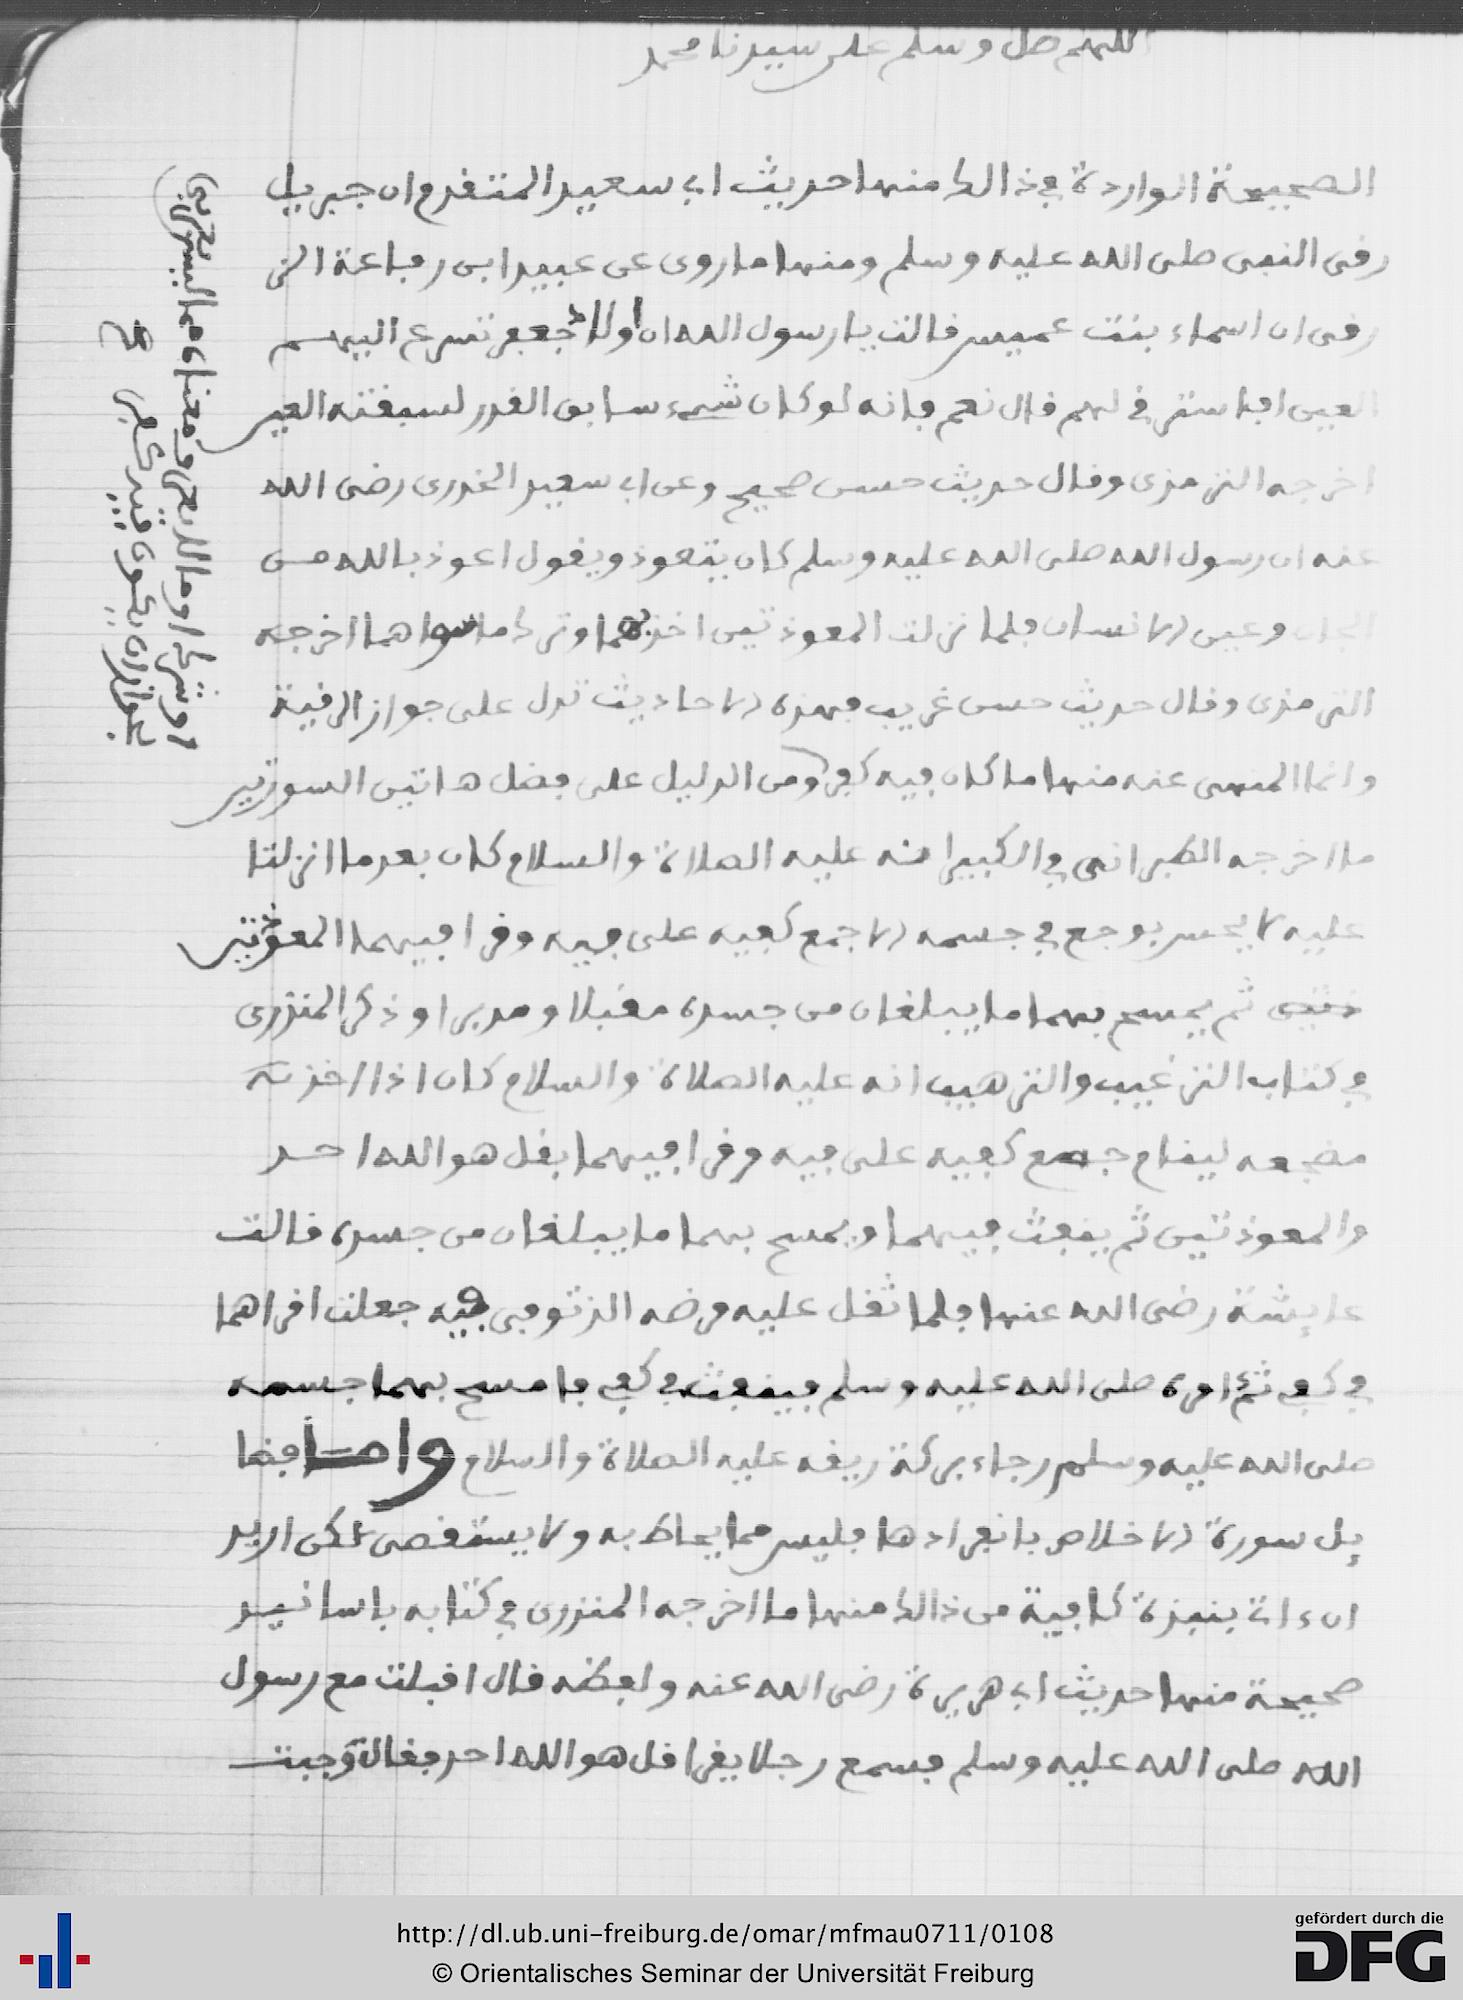 اللهم صل وسلم على سيدنا محمد
الصحيحة الواردة في ذالك منها حديث ابي سعيد المتقدم ان جبريل
رقى النبي صلى الله عليه وسلم ومنها ما روى عن عبيد ابن رفاعة الزر
رقى ان اسماء بنت عميس قالت يا رسول الله ان اولاد جعفر تسرع اليهم
العين افاسترقي لهم قال نعم فانه لو كان شيء سابق القدر لسبقته العين
اخرجه الترمذى وقال حديث حسن صحيح وعن ابي سعيد الخدرى رضى الله
عنه ان رسول الله صلى الله عليه وسلم كان يتعوذ ويقول اعوذ بالله من
الجان وعين الانسان فلما نزلت المعوذتين اخذ بهما وترك ما سواهما اخرجه
الترمذى وقال حديث حسن غريب فهذه الاحاديث تدل على جواز الرقية
وانما المنهى عنه منها ما كان فيه كفر ومن الدليل على فضل هاتين السورتين
ما اخرجه الطبرانى في الكبير انه عليه الصلاة والسلام كان بعد ما انزلتا
عليه لا يحس بوجع في جسمه الا جمع كفيه على فيه وقرا فيهما المعوذتين
ثم يمسح بهما ما يبلغان من جسده مقبلا ومدبرا وذكر المنذرى
في كتاب الترغيب والترهيب انه عليه الصلاة والسلام كان اذا اخذ
مضجعه لينام جمع كفيه على فيه وقرا فيهما بقل هو الله احد
والمعوذتين ثم ينفث فيهما ويمسح بهما ما يبلغان من جسده قالت
عايشة رضى الله عنها فلما ثقل عليه مرضه الذ توفى فيه جعلت اقراهما
في كفي ثم امره صلى الله عليه وسلم فينفث في كفي فامسح بهما جسمه
صلى الله عليه وسلم رجاء بركة ريقه عليه الصلاة والسلام واما فضا
يل سورة الاخلاص بانفرادها فليس مما يحاط به ولا يستقصى لكن اريد
ان ءاتي بنبذة كافية من ذالك منها ما اخرجه المنذرى في كتابه باسانيد
صحيحة منها حديث ابي هريرة رضى الله عنه ولفظه قال اقبلت مع رسول
الله صلى الله عليه وسلم فسمع رجلا يقرا قل هو الله احد فقال وجبت
او شركا وما لا يعرف معناه مما ليس بعربي
بجواز ان يكون فيه كفر
http://dl.ub.uni-freiburg.de/omar/mfmau0711/0108
© Orientalisches Seminar der Universität Freiburg
gefördert durch die
DFG